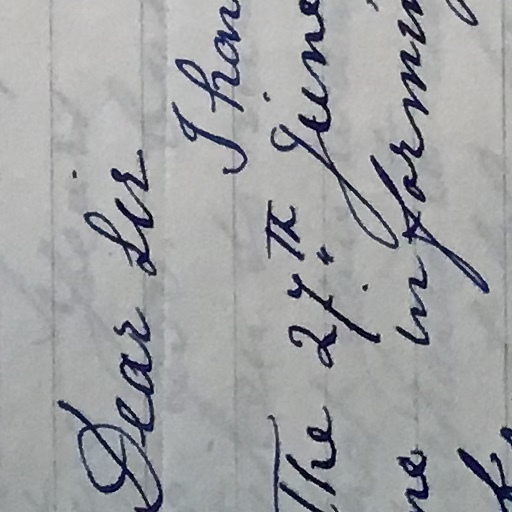 Dear Sir
I hav
The 27th June
ne informin